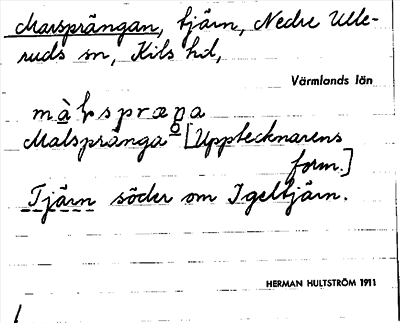 Marsprängan, tjärn, Nedre Ulle-
ruds sn, Kils hd,
Värmlands län
Malsprånga [Upptecknarens
form.]
Tjärn söder om Igeltjärn.
HERMAN HULTSTRÖM 1911